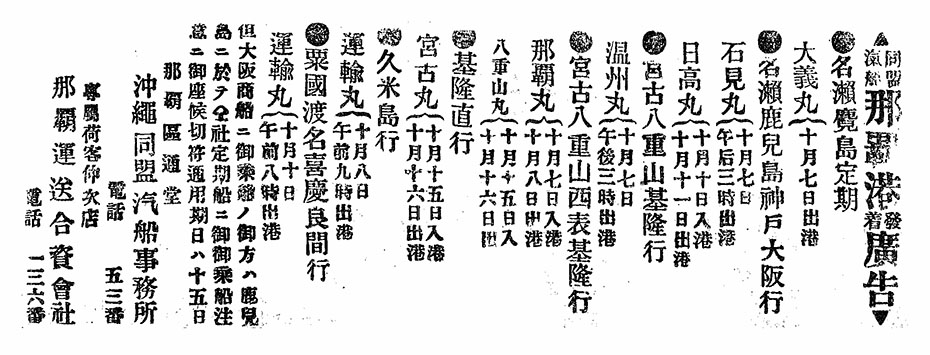 同盟汽船那覇港發着廣告
●名瀨覽島定期
大義丸 十月七日出港
●名瀨鹿兒島神戶大阪行
石見丸 十月七日午后三時出港
日高丸 十月十日入港十月十一日出港
●宮古八重山基隆行
温州丸 十月七日午後三時出港
●宮古八重山西表基隆行
那覇丸 十月十七日入港十月十八日出港
八重山丸 十月十五日入十月十六日出
●基隆直行
宮古丸 十月十五日入港十月十六日出港
●久米島行
運輸丸 十月八日午前九時出港
●粟國渡名喜慶良間行
運輸丸 十月十日午前八時出港
但大阪商船ニ御乘船ノ御方ハ鹿兒
島ニ於テ仝社定期船ニ御御乘船注
意ニ御座候切符通用期日ハ十五日
那覇區通堂
沖繩同盟汽船事務所
電話 五三番
專屬荷客仲次店
那覇運送合資會社
電話 一三六番